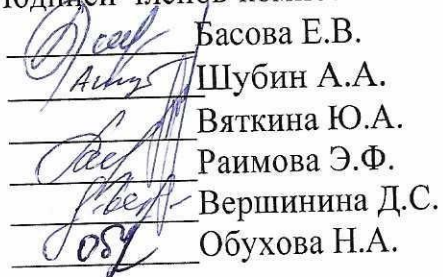 Подписи членов
Басова Е.В.
Шубин А.А.
Вяткина Ю.А.
Раимова Э.Ф.
Вершинина Д.С.
Обухова Н.А.